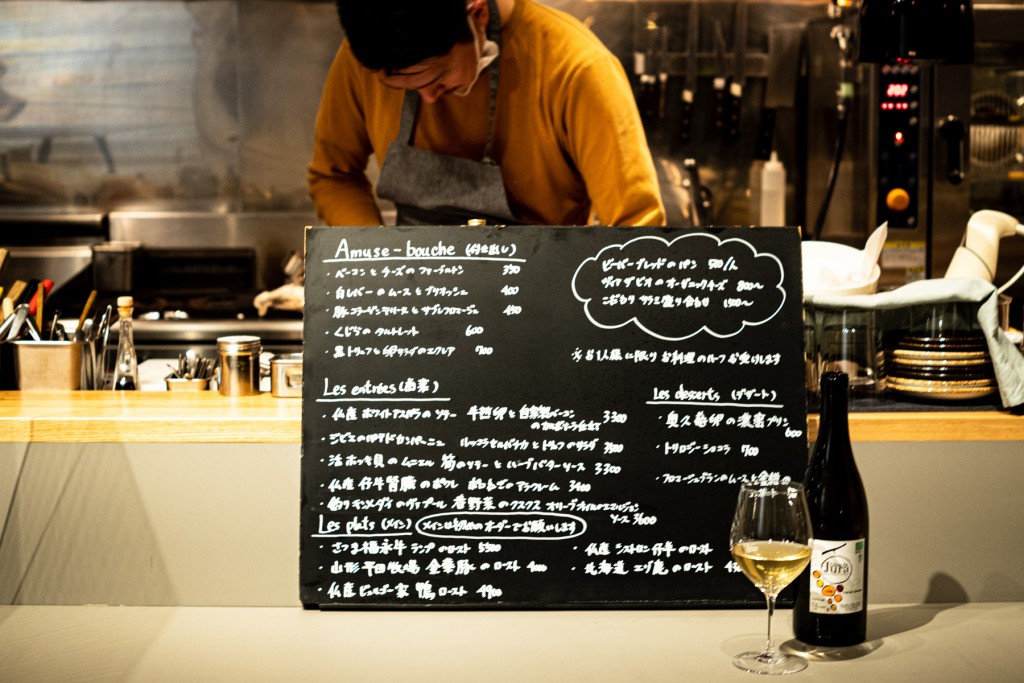 Amuse-bouche (付き出し)
・ベーコンとチーズの 350
・白レバーのムースとブリオッシュ 400
・豚コラーゲンテリーヌとサブレフロマージュ 450
・くじらのタルトレット 600
・黒トリュフと卵サラダのエクレア 700
ビーバーブレッドのパン 500/人
ヴィアザビオのオーガニックチーズ 800〜
こだわりサラミ盛り合わせ 1500〜
※お1人様に限りお料理のハーフお受けします
Les entrées (前菜)
・仏産ホワイトアスパラのソテー 半熟卵と自家製ベーコン
のカルボナーラ仕立て 3300
・ジビエのパテドカンパーニュ ルッコラセルバチカとトリュフのサラダ 3500
・活ホッキ貝のムニエル 筍のソテーとハーブバターソース 3300
・仏産仔牛腎臓のポワレ 3400
・釣りキンメダイのヴァプール 香野菜のクスクス オリーブオイルのエマルジョン
ソース 3600
Les desserts (デザート)
・奥久慈卵の濃蜜プリン
600
・トリロジーショコラ 700
・フロマージュブランのムースと金柑の
コンポート
Les plats (メイン) メインは初めのオーダーでお願いします
・さつま福永牛 ランプのロースト 5500
・山形平田牧場 金華豚のロースト
・仏産ビュルゴー家 鴨ロースト 4900
・仏産シストロン仔羊のロースト
・北海道エゾ鹿のロースト
Jura
202